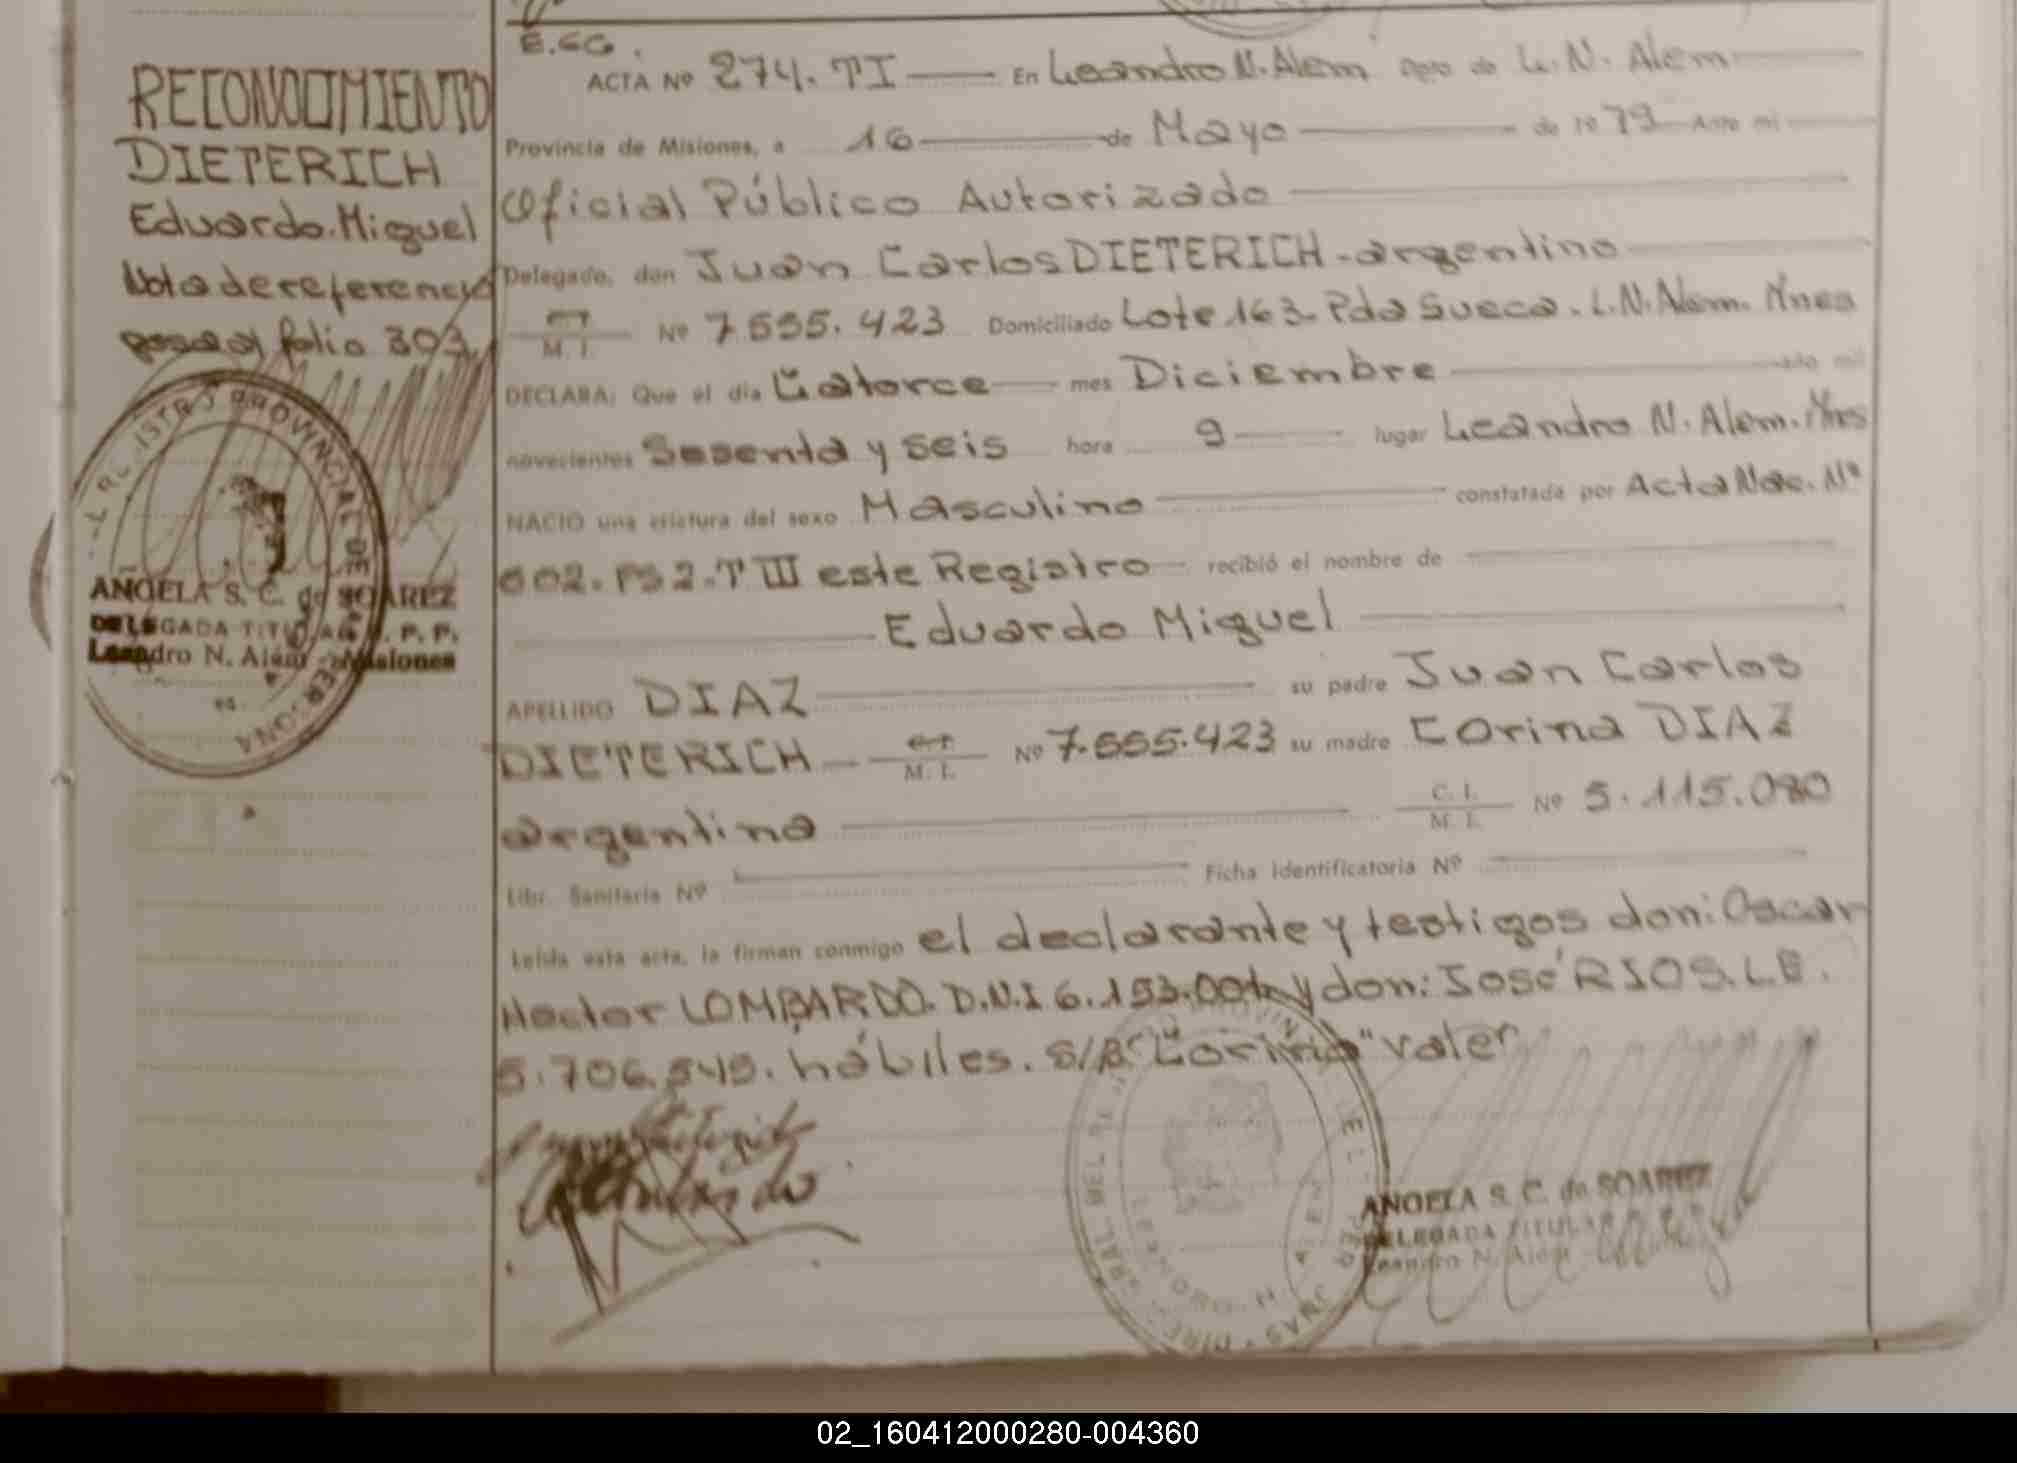 RECONOCIMIENTO
DIETERICH
Eduardo.Miguel
Nota de referencia
pasa al folio 303
ANGELA S. C. de SOAREZ
DELEGADA TITULAR R. P. P.
Leandro N. Alem - Misiones
E.CG.
ACTA Nº 274. TI — En Leandro N. Alem Dpto de L. N. Alem
Provincia de Misiones, a 16 de Mayo de 1979 Ante mi
Oficial Público Autorizado
Delegado, don Juan Carlos DIETERICH - argentino
M. I. Nº 7.555.423 Domiciliado Lote 163. Pda Sueca. L.N. Alem. Mnes
DECLARA: Que el día Catorce mes Diciembre año mil
novecientos Sesenta y seis hora 9 lugar Leandro N. Alem. Mnes
NACIO una criatura del sexo Masculino constatada por Acta Nac. Nº
602. Fs 2. T III este Registro recibió el nombre de
Eduardo Miguel
APELLIDO DIAZ su padre Juan Carlos
DIETERICH M. I. Nº 7.555.423 su madre Corina DIAZ
argentina C. I. M. I. Nº 5.115.080
Libr. Sanitaria Nº Ficha identificatoria Nº
Leída esta acta, la firman conmigo el declarante y testigos don: Oscar
Hector LOMBARDO. D.N.I 6.153.001 y don: José RIOS. L.E.
5.706.549. hábiles. S/R "Corina" valer
ANGELA S. C. de SOAREZ
DELEGADA TITULAR R. P. P.
Leandro N. Alem
02_160412000280-004360